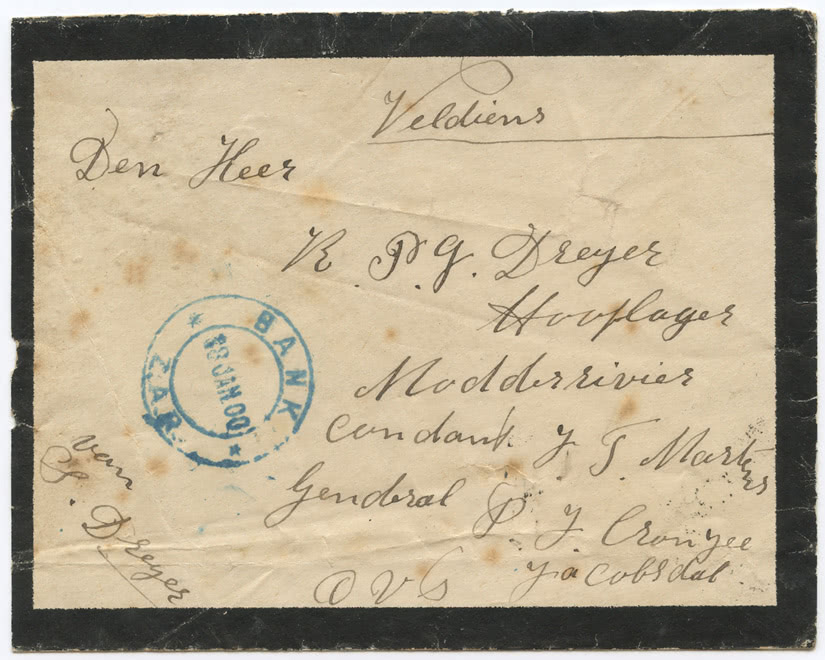 Veldiens
Den Heer
R. P. G. Dreyer
Hooflager
Modderrivier
Condant J. T. Martens
Genderal P. J. Cronyee
OVS Jacobsdal
van
S. Dreyer
BANK
18 JAN 00
Z.A.R.